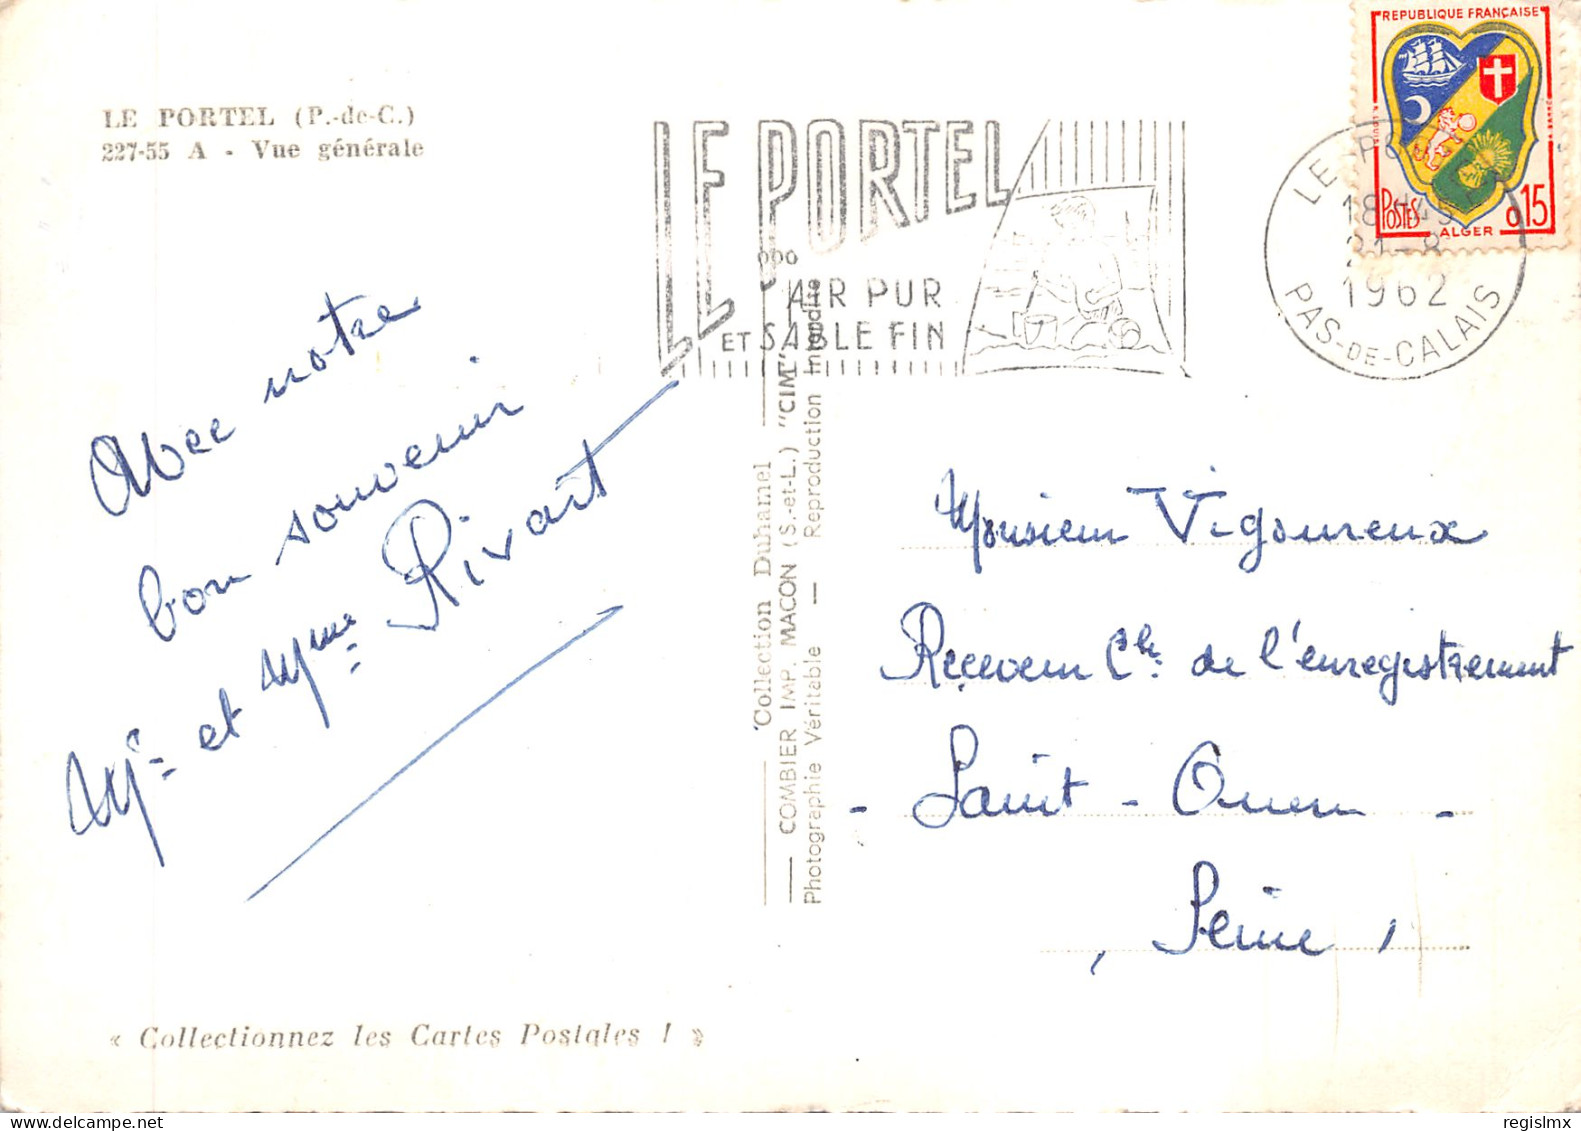 LE PORTEL (P.-de-C.)
227-55 A - Vue générale
LE PORTEL
AIR PUR
ET SABLE FIN
REPUBLIQUE FRANÇAISE
POSTES
0,15
ALGER
LE PO
18 H45
21-8
1962
PAS-DE-CALAIS
Avec notre
bon souvenir
Mr et Mme Rivart
Collection Duhamel
COMBIER IMP. MACON (S.-et-L.) "CIM"
Photographie Véritable — Reproduction Interdite
Monsieur Vigoureux
Receveur Cle de l'enregistrement
- Saint-Ouen -
, Seine ,
« Collectionnez les Cartes Postales ! »
regislmx